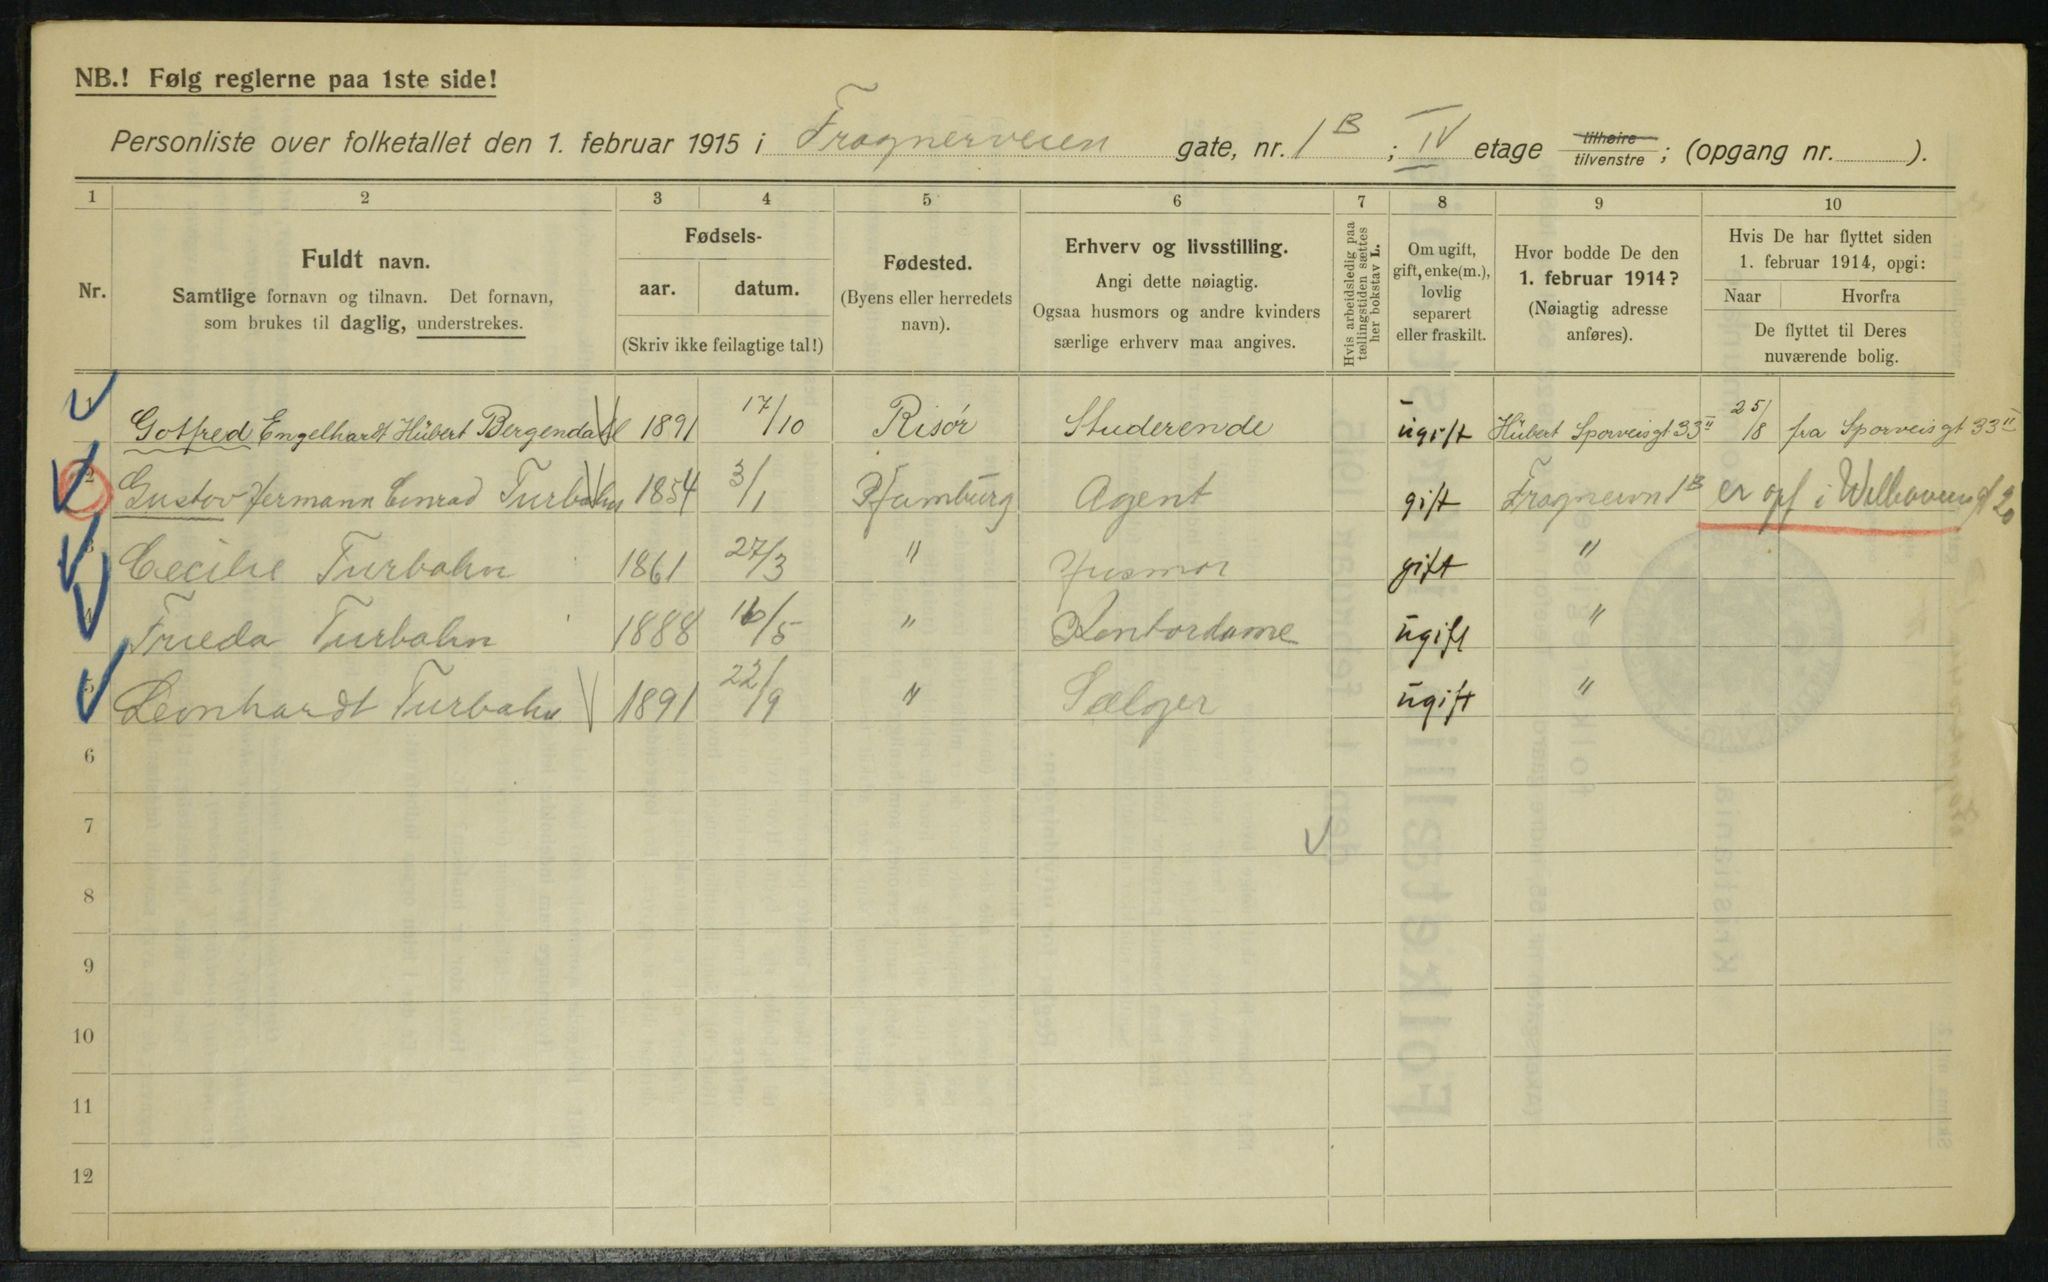 NB.! Følg reglerne paa 1ste side!
Personliste over folketallet den 1. februar 1915 i Frognerveien gate, nr. 1B ; IV etage tilhøire tilvenstre ; (opgang nr. ).
1 2 3 4 5 6 7 8 9 10
Nr.
Fuldt navn.
Samtlige fornavn og tilnavn. Det fornavn,
som brukes til daglig, understrekes.
Fødsels-
aar. datum.
(Skriv ikke feilagtige tal!)
Fødested.
(Byens eller herredets
navn).
Erhverv og livsstilling.
Angi dette nøiagtig.
Ogsaa husmors og andre kvinders
særlige erhverv maa angives.
Hvis arbeidsledig paa
tællingstiden sættes
her bokstav L.
Om ugift,
gift, enke(m.),
lovlig
separert
eller fraskilt.
Hvor bodde De den
1. februar 1914?
(Nøiagtig adresse
anføres).
Hvis De har flyttet siden
1. februar 1914, opgi:
Naar Hvorfra
De flyttet til Deres
nuværende bolig.
1 Gotfred Engelhardt Hübert Bergendahl 1891 17/10 Risör Studerende ugift Hübert Sporveisgt 33 II 25/8 fra Sporveisgt 33 II
2 Gustav Hermann Conrad Turbahn 1854 3/1 Hamburg Agent gift Frognervn 1B er opf i
3 Cecilie Turbahn 1861 27/3 " Husmor gift "
4 Frieda Turbahn 1888 16/5 " Kontordame ugift "
5 Leonhardt Turbahn 1891 22/9 " Sælger ugift "
6
7
8
9
10
11
12